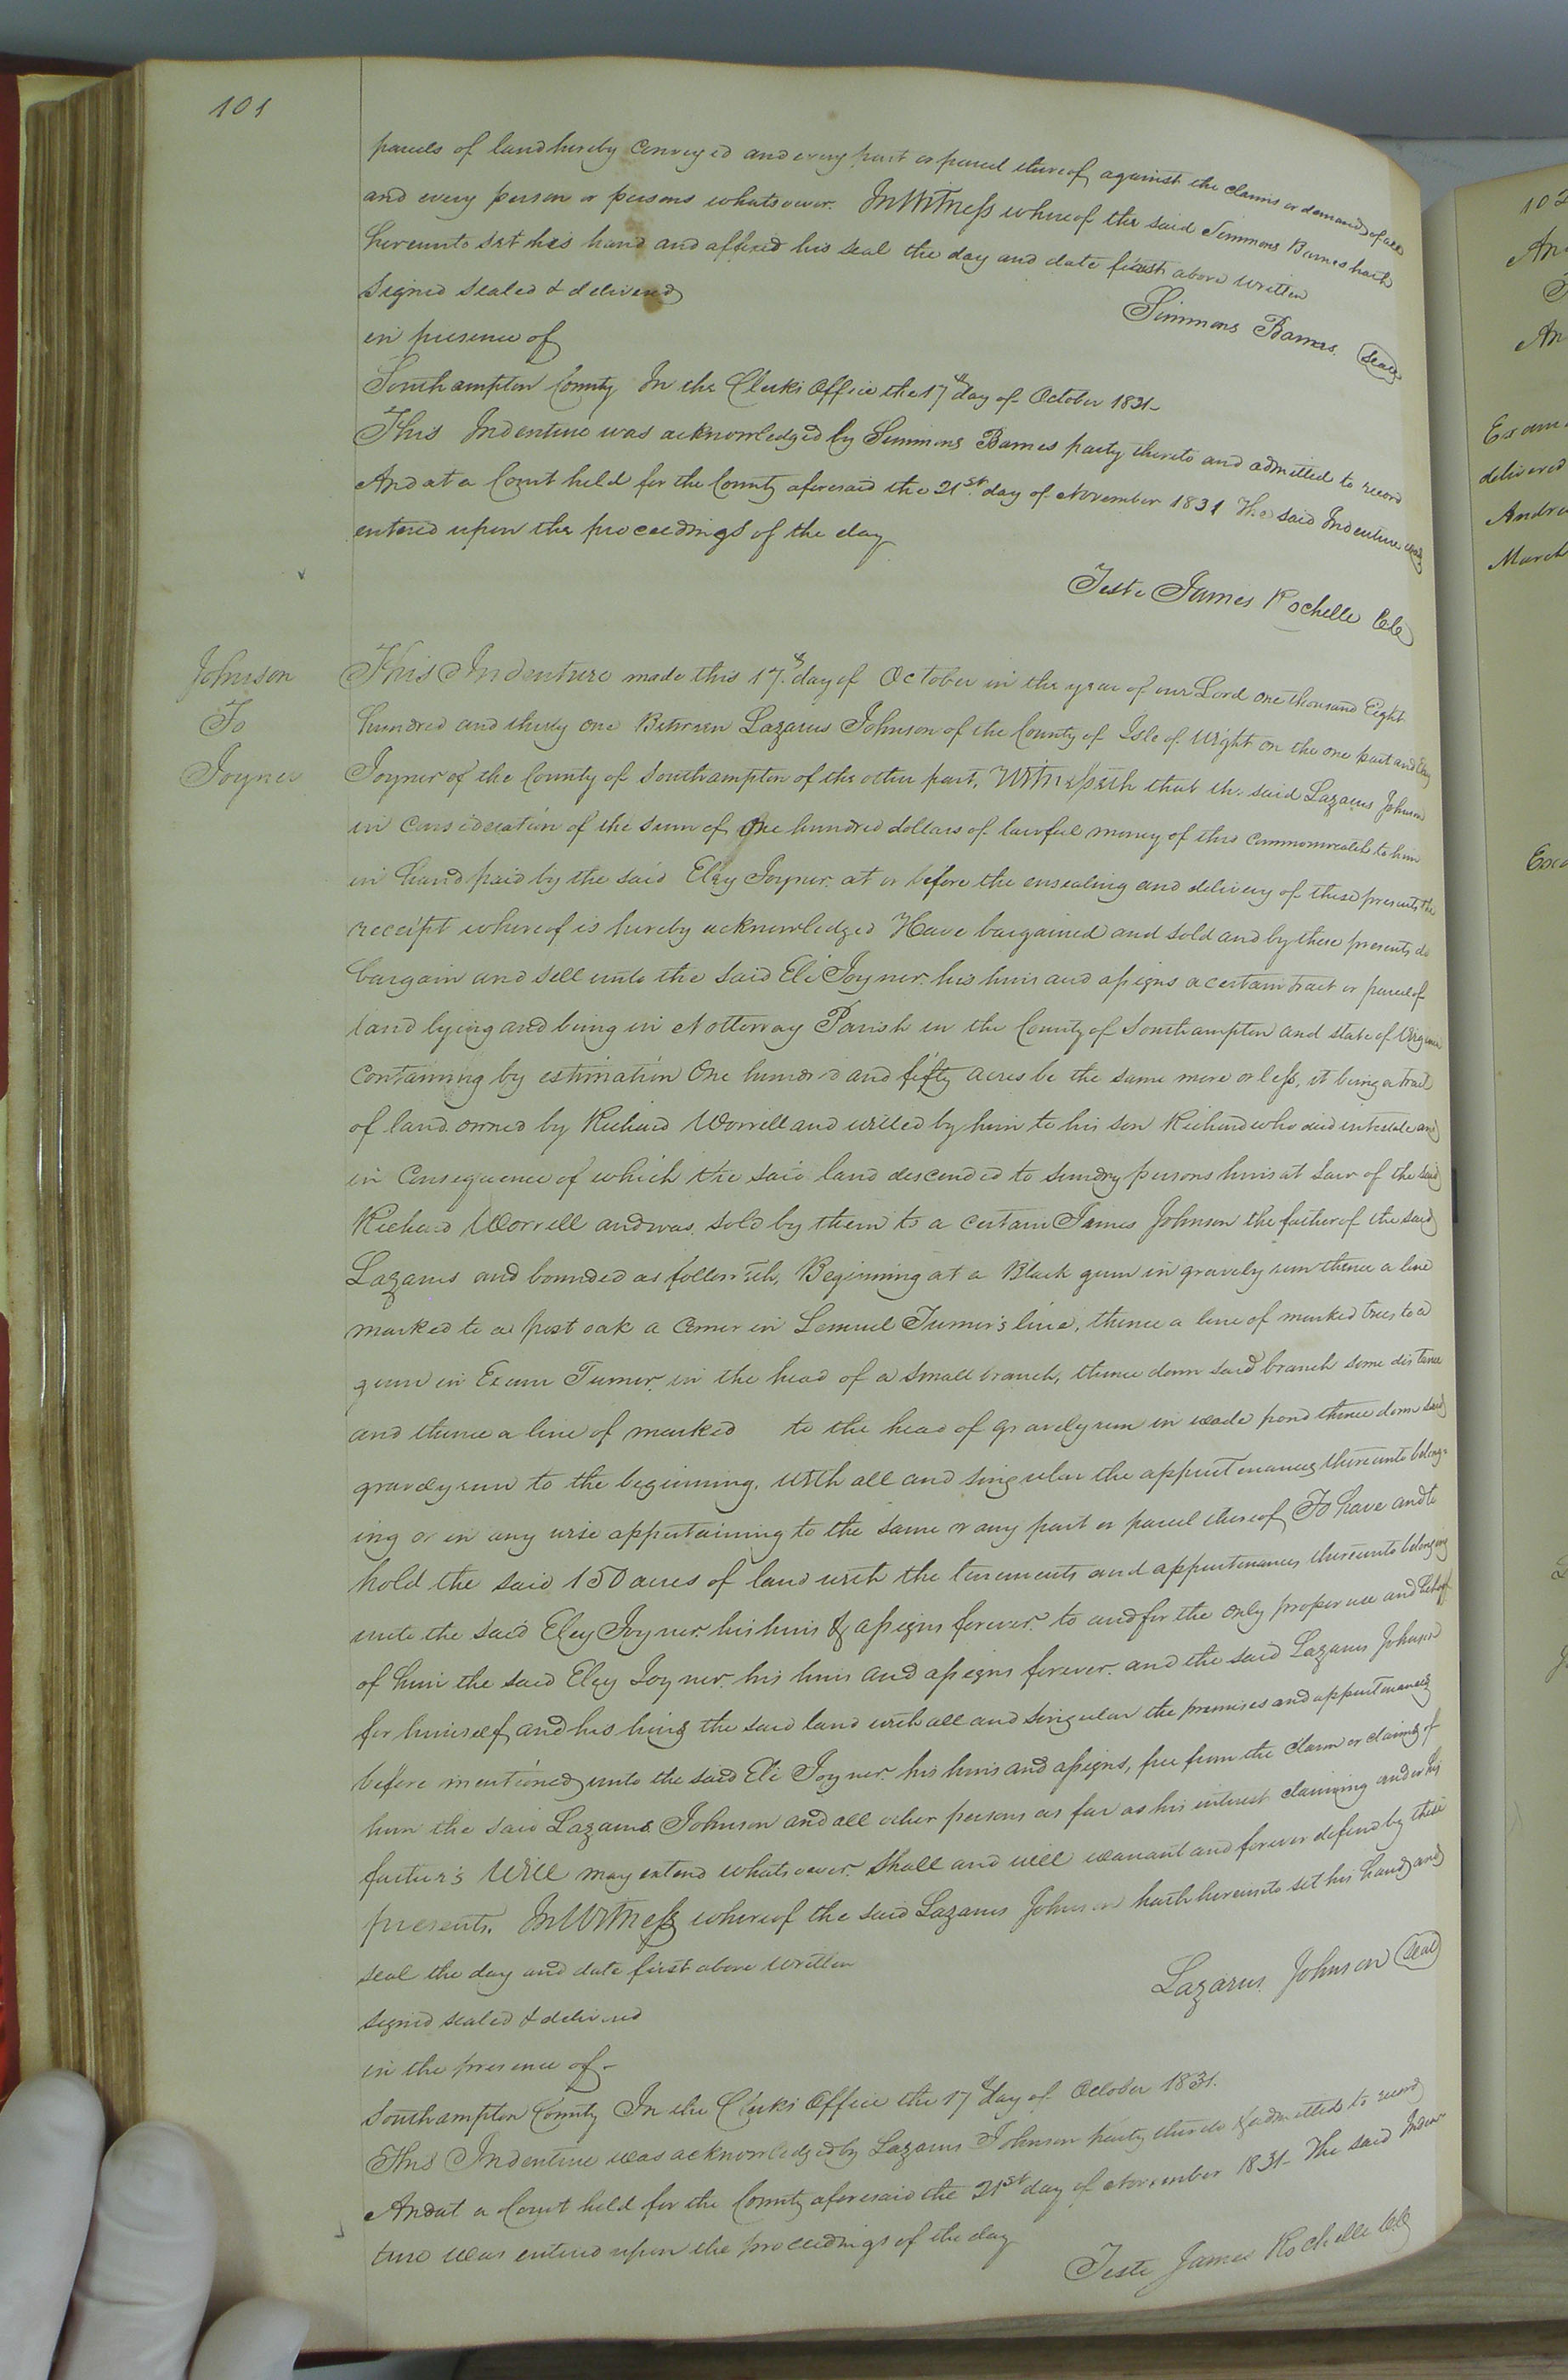 101
parcels of land hereby conveyed and every part or parcel thereof, against the claims or demands of all
and every person or persons whatsoever. In Witness whereof the said Simmons Barnes hath
hereunto set his hand and affixed his seal the day and date first above written
Signed Sealed & delivered
Simmons Barnes. Seal
in presence of
Southampton County In the Clerks Office the 17th day of October 1831-
This Indenture was acknowledged by Simmons Barnes party thereto and admitted to record
And at a Court held for the County aforesaid the 21st. day of November 1831 The said Indenture was
entered upon the proceedings of the day
Teste James Rochelle Clk
Johnson
To
Joyner
This Indenture made this 17th. day of October in the year of our Lord one thousand Eight
hundred and thirty one Between Lazarus Johnson of the County of Isle of Wight on the one part and Eley
Joyner of the County of Southampton of the other part, Witnesseth that the said Lazarus Johnson
in consideration of the sum of One hundred dollars of lawful money of this commonwealth to him
in hand paid by the said Eley Joyner. at or before the ensealing and delivery of these presents the
receipt whereof is hereby acknowledged Have bargained and sold and by these presents do
bargain and sell unto the said Eli Joyner. his heirs and assigns a certain tract or parcel of
land lying and being in Nottoway Parish in the County of Southampton and state of Virginia
Containing by estimation One hundred and fifty acres be the same more or less, it being a tract
of land. owned by Richard Worrell and willed by him to his son Richard who died intestate and
in Consequence of which the said land descended to sundry persons heirs at law of the said
Richard Worrell and was. sold by them to a certain James Johnson the father of the said
Lazarus and bounded as followeth, Beginning at a Black gum in gravely run thence a line
marked to a post oak a corner in Lemuel Turner's line, thence a line of marked trees to a
gum in Exum Turner. in the head of a small branch, thence down said branch some distance
and thence a line of marked to the head of gravely run in wade pond thence down said
gravely run to the beginning. with all and singular the appurtenances thereunto belong-
ing or in any wise appertaining to the same or any part or parcel thereof, To have and to
hold the said 150 acres of land with the tenements and appurtenances thereunto belonging
unto the said Eley Joyner. his heirs & assigns forever. to and for the only proper use and behoof
of him the said Eley Joyner. his heirs and assigns forever. and the said Lazarus Johnson
for himself and his heirs the said land with all and singular the premises and appurtenances
before mentioned unto the said Eli Joyner. his heirs and assigns, free from the claim or claims of
him the said Lazarus Johnson and all other persons as far as his interest claiming under his
father's Will may extend whatsoever. Shall and will warrant and forever defend by these
presents. In Witness whereof the said Lazarus Johnson hath hereunto set his hand and
seal the day and date first above written
Lazarus. Johnson Seal
Signed sealed & delivered
in the presence of-
Southampton County In the Clerks Office the 17th day of October 1831.
This Indenture was acknowledged by Lazarus Johnson party thereto & admitted to record
And at a Court held for the County aforesaid the 21st day of November 1831- The said Inden
ture was entered upon the proceedings of the day
Teste James Rochelle Clk
delivered
March